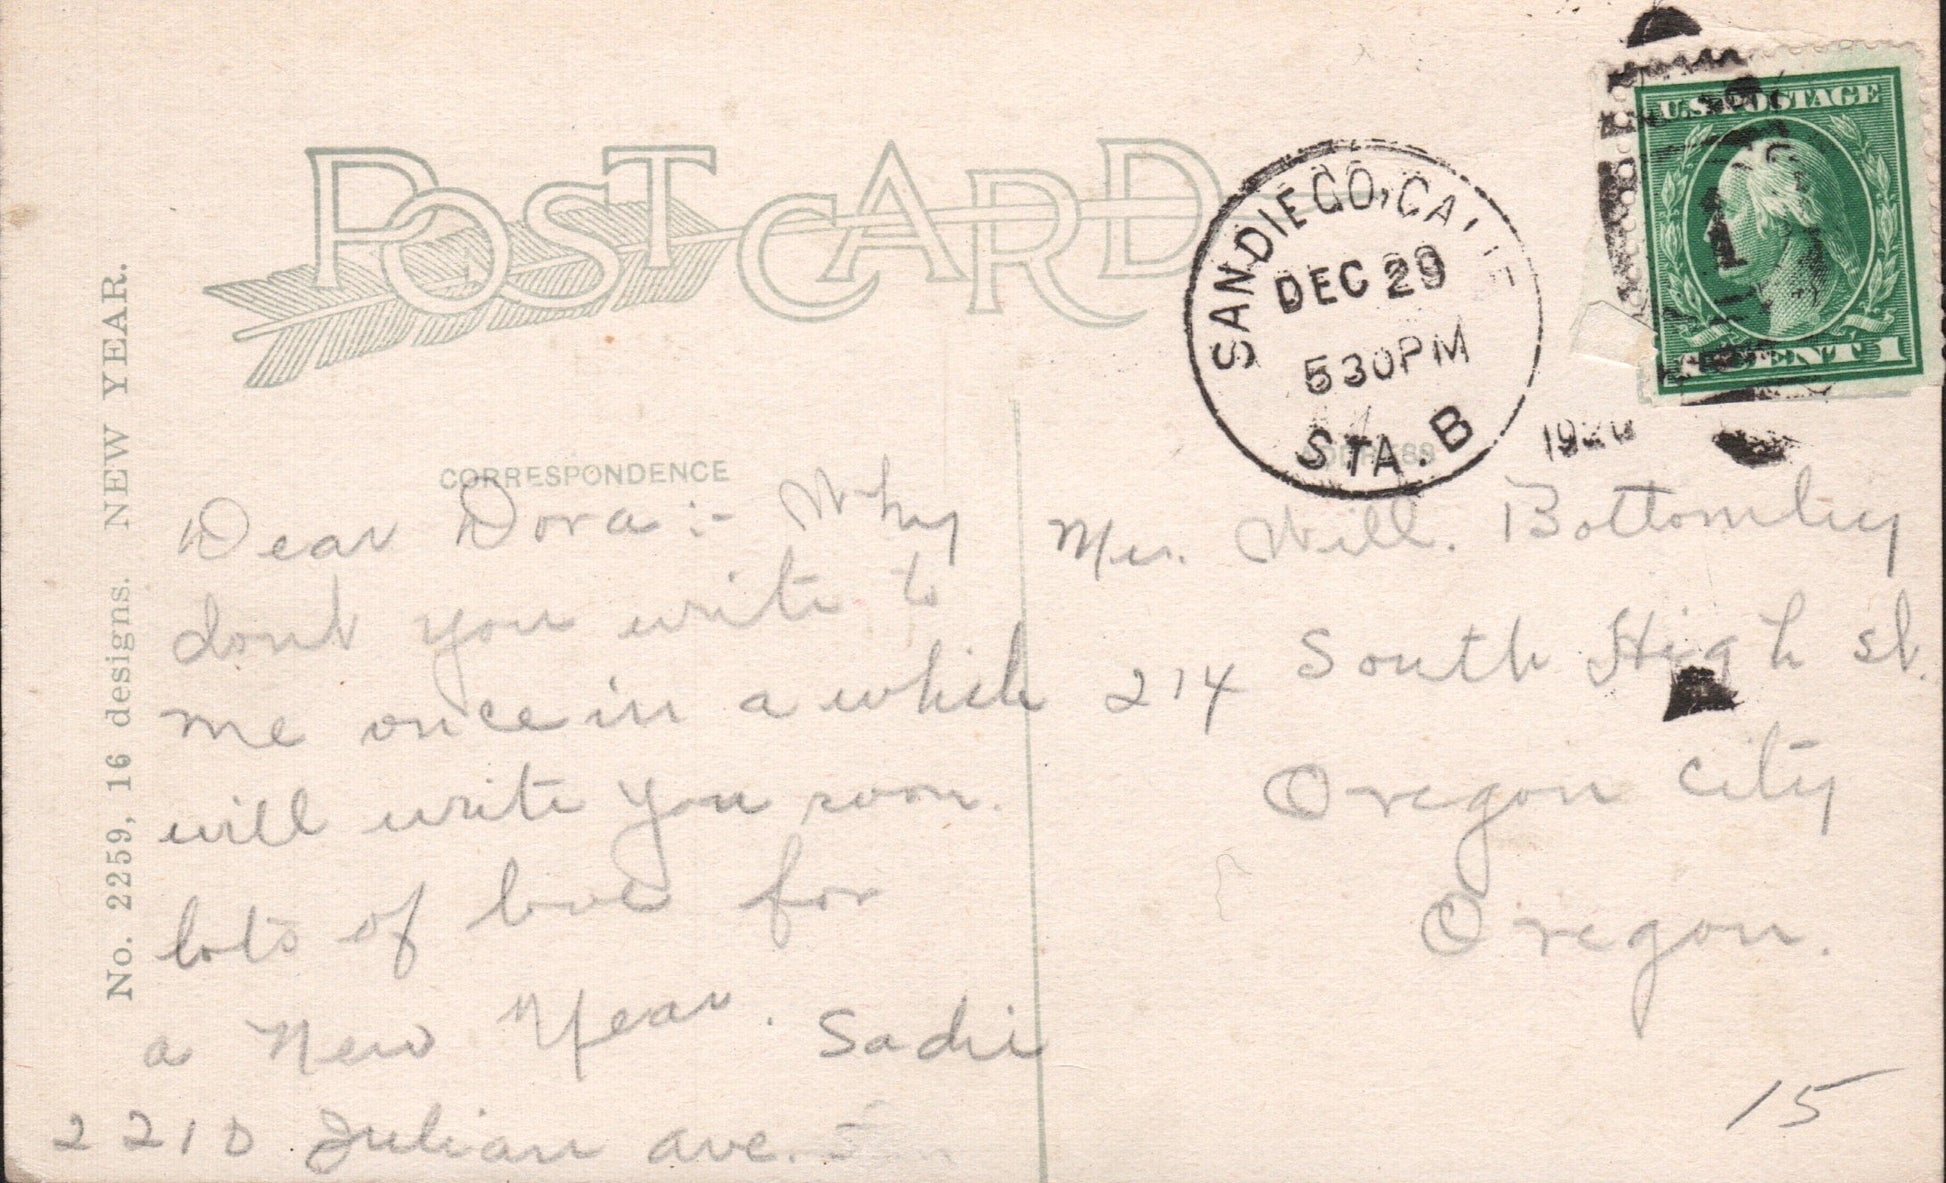 POST CARD
CORRESPONDENCE
No. 2259, 16 designs. NEW YEAR.
Dear Dora :- Why
dont you write to
me once in a while
will write you soon.
lots of love for
a New Year. Sadie
2210 Julian ave.
U.S. POSTAGE
CENT 1
SAN DIEGO, CALIF
DEC 29
5 30 PM
STA. B
1920
ADDRESS
Mrs. Will. Bottomley
214 South High st.
Oregon City
Oregon.
15